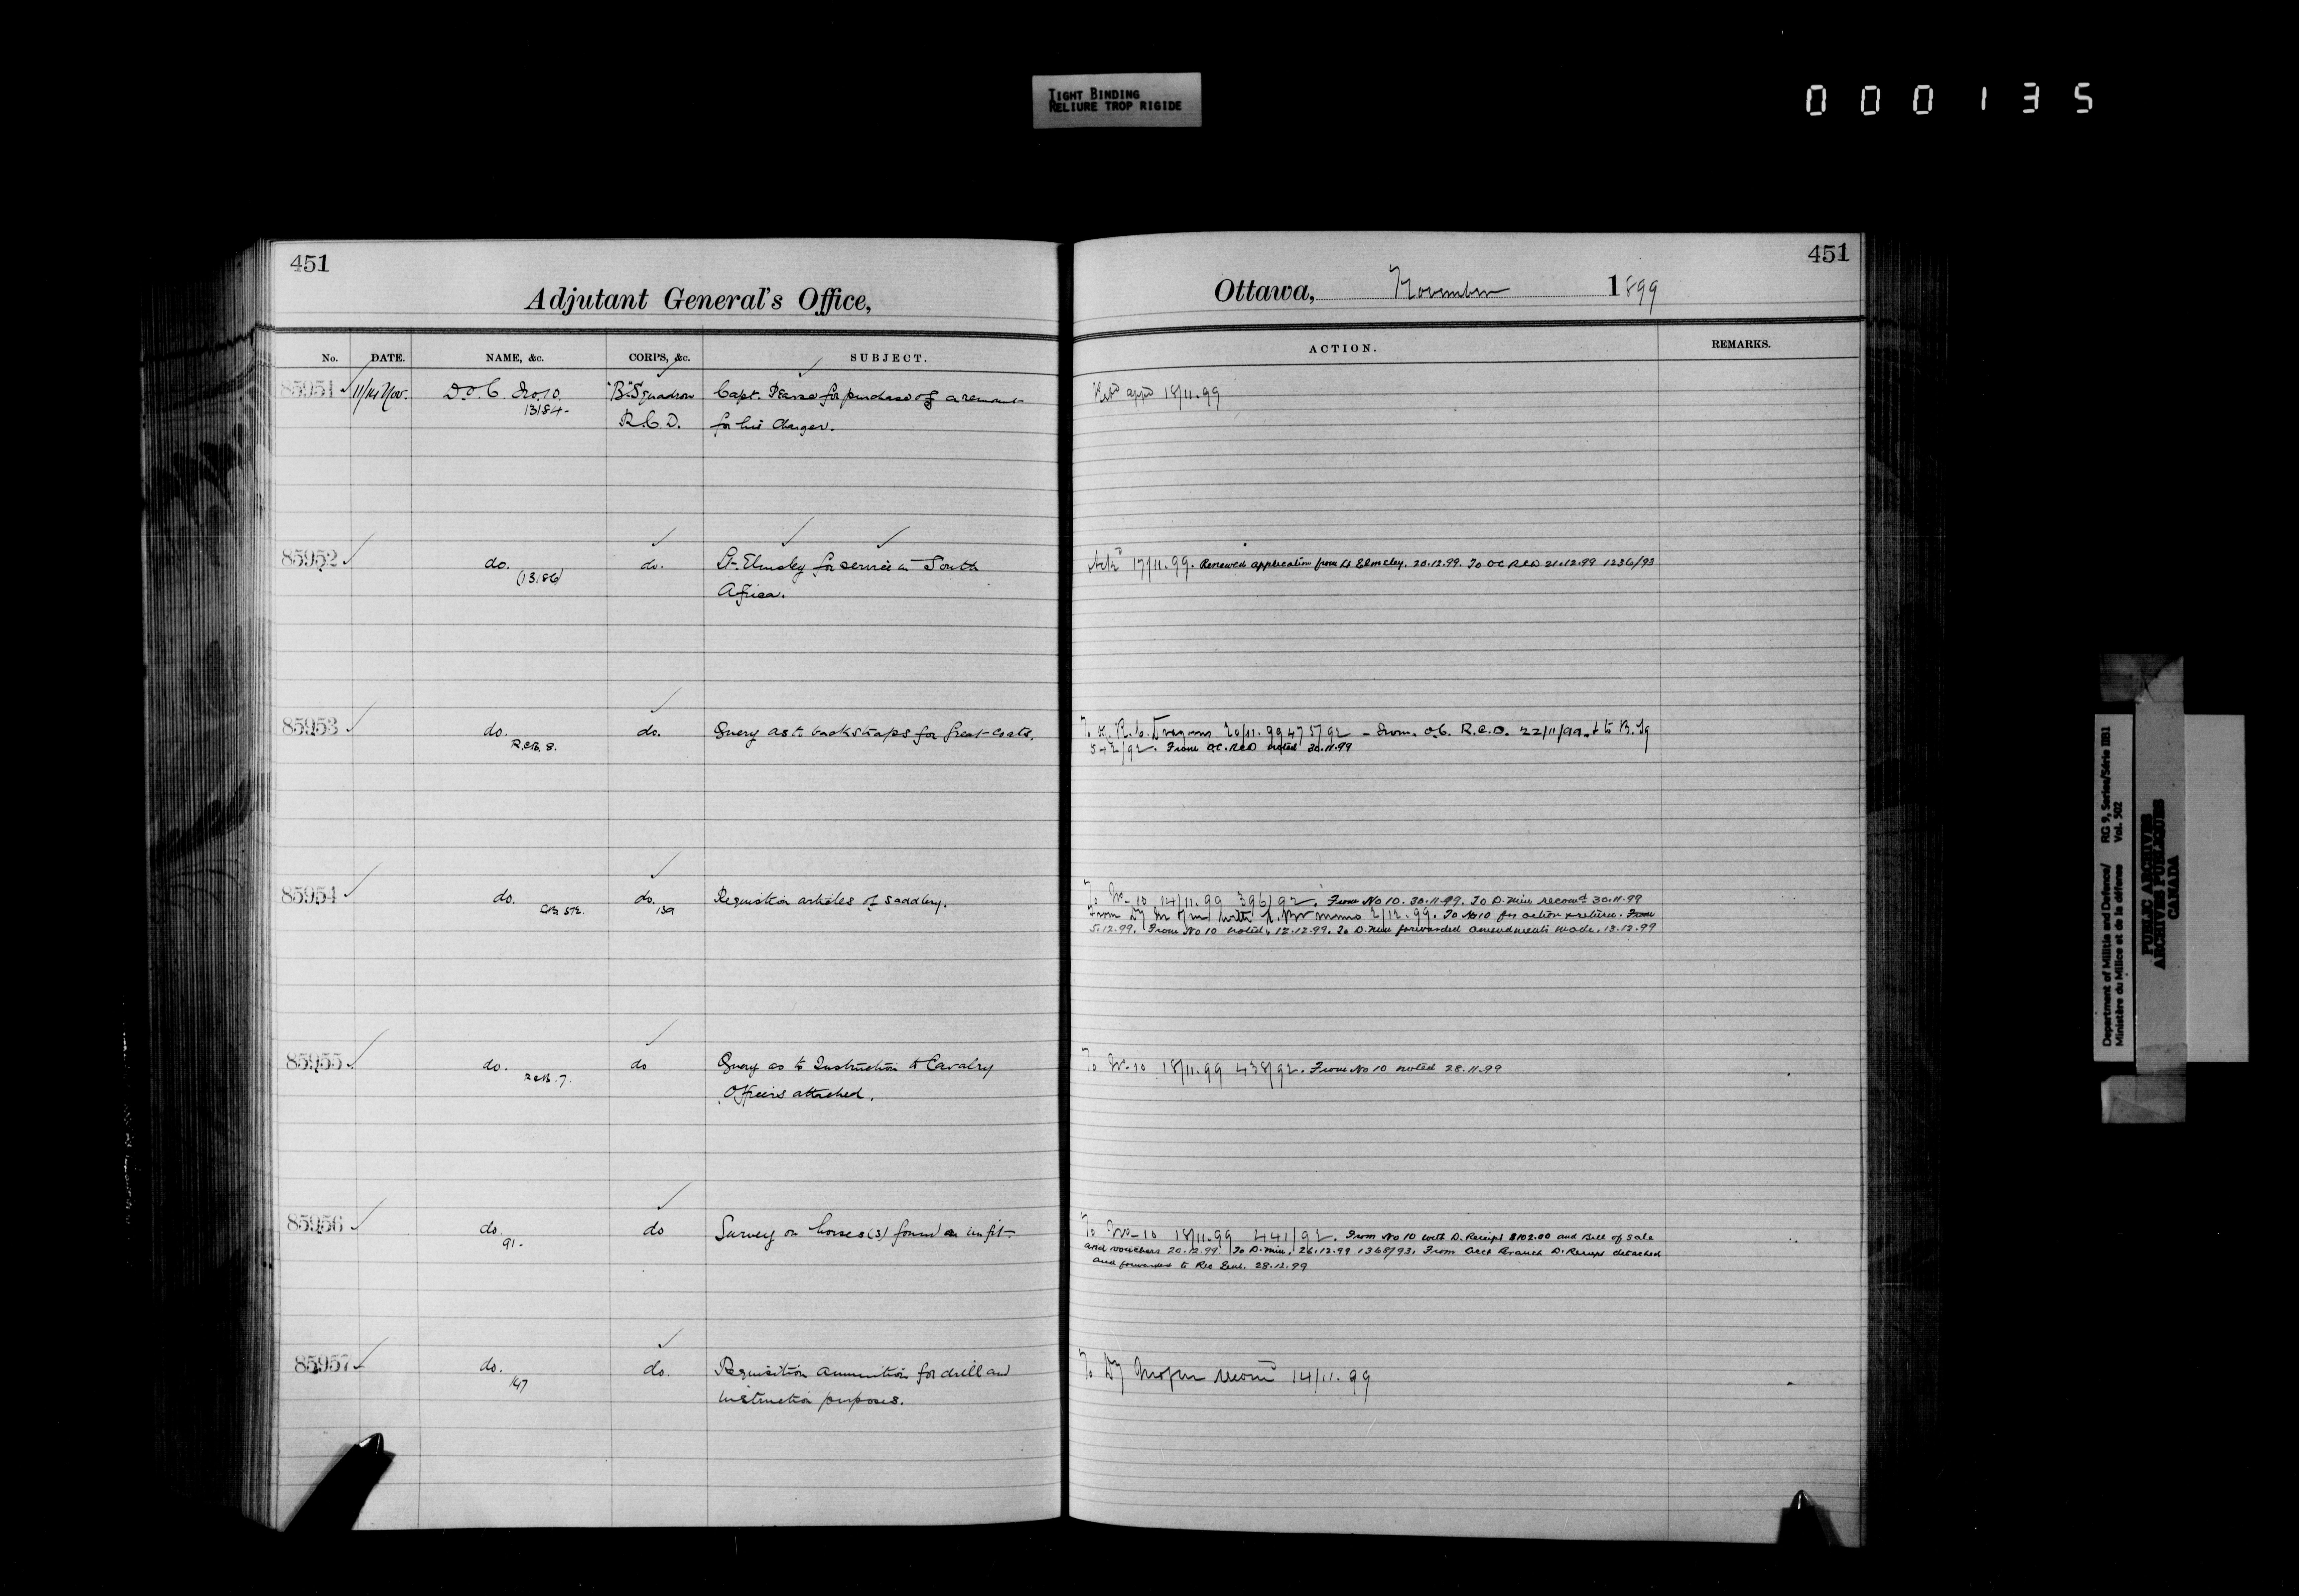 TIGHT BINDING
RELIURE TROP RIGIDE
000135
451
Adjutant General's Office,
No. DATE. NAME, &c. CORPS, &c. SUBJECT.
85951 11/14 Nov. D.O.C. No. 10. "B" Squadron Capt. for purchase of a remount
13184 R.C.D. for his Charger.
85952 do. do. Lt. Elmsley for service in South
(13186) Africa.
85953 do. do. Query as to back straps for Great-Coats.
85954 do. do. Requisition articles of Saddlery.
139
85955 do. do Query as to Instruction to Cavalry
7. Officers attached.
85956 do. do Survey on horse(s) found unfit
91.
85957 do. do. Requisition ammunition for drill and
147 instruction purposes.
451
Ottawa, November 1899
ACTION. REMARKS.
18/11.99
17/11.99. Renewed application from Lt Elmsley. 20.12.99. To OC RCD 21.12.99 1236/93
To R.C. Dragoons 20/11.99 475/92 - From. O.C. R.C.D. 22/11/99. & to B. Sq
542/92. From OC. RCD noted 30.11.99
To No. 10 14/11.99 396/92. From No 10. 30.11.99. To D. Min recomd 30.11.99
From Dy M of M with memo 2/12.99. To No 10 for action & return. From
5.12.99. From No 10 noted. 12.12.99. To D. Min forwarded amendments made. 13.12.99
To No. 10 18/11.99 438/92. From No 10 noted 28.11.99
To No. 10 18/11.99 441/92. From No 10 with D. Receipt $102.00 and Bill of Sale
and vouchers 20.12.99 To D. Min. 26.12.99 1368/93. From Acct Branch D. Receipt detached
and forwarded to Rec Genl. 28.12.99
To Dy M of M recomd 14/11.99
Department of Militia and Defence/ RG 9, Series/Série IIB1
Ministère du Milice et de la défense Vol. 502
PUBLIC ARCHIVES
ARCHIVES PUBLIQUES
CANADA